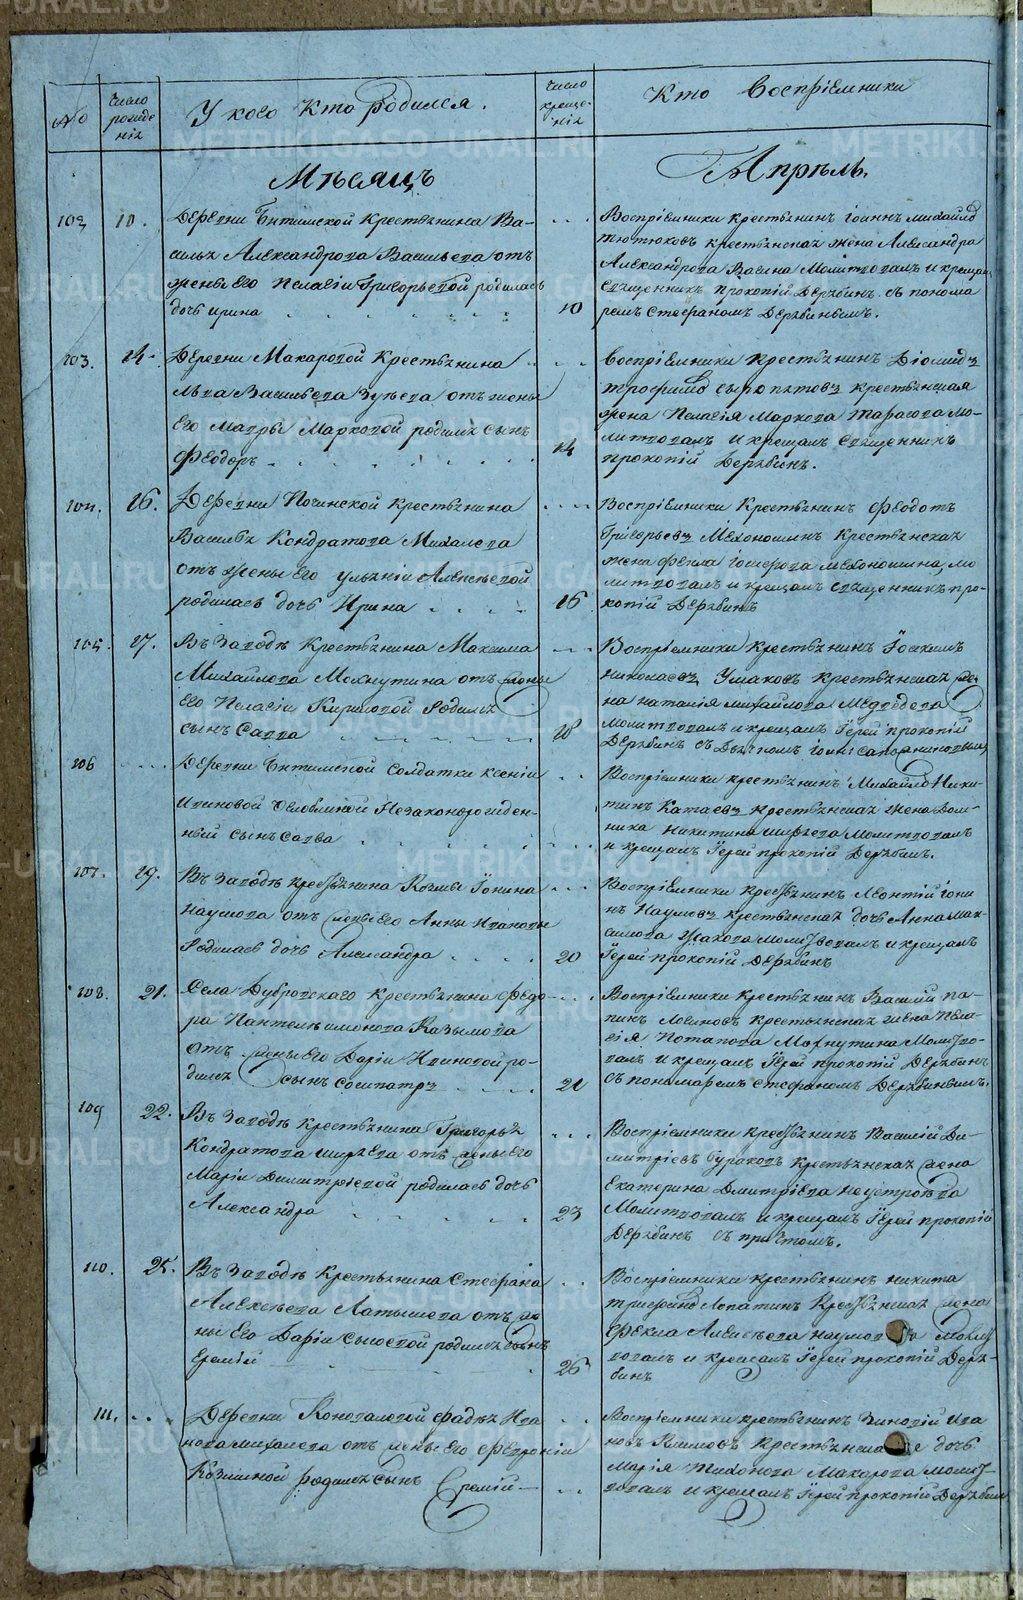 №
Число рожде-ния
У кого кто родился.
Число креще-нія
Кто воспріемники
Мѣсяцъ
Апрѣль.
102 10. Деревни Бытимской крестьянина Ва-
силья Александрова Васильева отъ
жены его Пелагіи Григорьевой родилась
дочь Ирина
10
Воспріемники крестьянинъ Іоаннъ Михайловъ
Тютюковъ крестьянская жена Александра
Александрова Васина Молитвовалъ и крещалъ
священникъ Прокопій Дерябинъ съ понома
ремъ Стефаномъ Дерябинымъ.
103. 14. Деревни Макаровой крестьянина
Льва Васильева Зуева отъ жены
его Мавры Марковой родился сынъ
Феодоръ
14
Воспріемники крестьянинъ Діомидъ
Трофимовъ Сыропятовъ крестьянская
жена Пелагія Маркова Тарасова мо-
литвовалъ и крещалъ священникъ
Прокопій Дерябинъ.
104. 16. Деревни Починской крестьянина
Василья Кондратова Михалева
отъ жены его Ульяніи Алексѣевой
родилась дочь Ирина
16
Воспріемники крестьянинъ Феодотъ
Григорьевъ Мехоношинъ крестьянская
жена Фекла Іосифова Мехоношина, мо
литвовалъ и крещалъ священникъ про-
копій Дерябинъ
105. 17. Въ Заводѣ крестьянина Максима
Михайлова Мохнутина отъ жены
его Пелагіи Кириловой родился
сынъ Савва
18
Воспріемники крестьянинъ Іоакимъ
Николаевъ Ушаковъ крестьянская же
на Наталія Михайлова Медведева
молитвовалъ и крещалъ Іерей Прокопій
Дерябинъ съ дьячкомъ
106 Деревни Бытимской солдатки Ксеніи
незаконорожден-
ный сынъ Савва
Воспріемники крестьянинъ Михайло Ники-
тинъ Катаевъ крестьянская жена Дом-
ника Никитина Ширяева молитвовалъ
и крещалъ Іерей Прокопій Дерябинъ.
107. 19. Въ Заводѣ крестьянина Козмы Іонина
Наумова отъ жены его Анны Ивановы
родилась дочь Александра
20
Воспріемники крестьянинъ Леонтій Іони
нъ Наумовъ крестьянская дочь Анна Мак-
симова Жакова молитвовалъ и крещалъ
Іерей Прокопій Дерябинъ
108. 21. Села Дубровскаго крестьянина Федо-
ра Пантелеимонова Казымова
отъ жены его Даріи Ивановой ро-
дился сынъ Сосипатръ
21
Воспріемники крестьянинъ Василій
крестьянская жена Пела-
гія Потапова Мохнутина Молитво-
валъ и крещалъ Іерей Прокопій Дерябинъ
съ пономаремъ Стефаномъ Дерябинымъ.
109 22. Въ Заводѣ крестьянина Григорья
Кондратова Ширяева отъ жены его
Маріи Димитріевой родилась дочь
Александра
23
Воспріемники крестьянинъ Василій Ди-
митріевъ Бураковъ крестьянская жена
Екатерина Дмитріева Неустроева
Молитвовалъ и крещалъ Іерей Прокопій
Дерябинъ съ причтомъ.
110. 25. Въ Заводѣ крестьянина Стефана
Алексѣева Латышева отъ же
ны его Даріи Сысоевой родился сынъ
Еремій
26
Воспріемники крестьянинъ Никита
Трифоновъ Лопатинъ крестьянская жена
Фекла Алексѣева Наумова Молит
вовалъ и крещалъ Іерей Прокопій Деря-
бинъ
111. Деревни Коноваловой Фадѣя Ива
нова Михалева отъ жены его Февроніи
Козминой родился сынъ Еремій
Воспріемники крестьянинъ Зиновій Ива
новъ Климовъ крестьянская дочь
Марія Тихонова Макарова молит-
вовалъ и крещалъ Іерей Прокопій Дерябинъ
METRIKI.GASO-URAL.RU